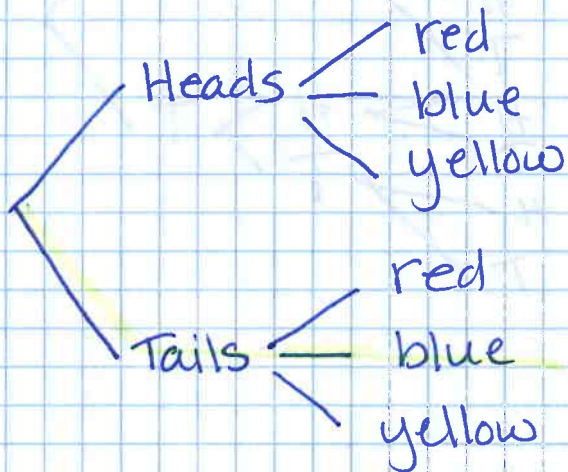 Heads
red
blue
yellow
Tails
red
blue
yellow